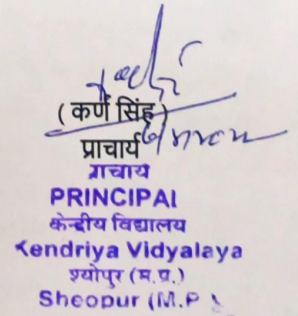 ( कर्ण सिंह )
प्राचार्य
प्राचार्य
PRINCIPAL
केन्द्रीय विद्यालय
Kendriya Vidyalaya
श्योपुर (म.प्र.)
Sheopur (M.P.)